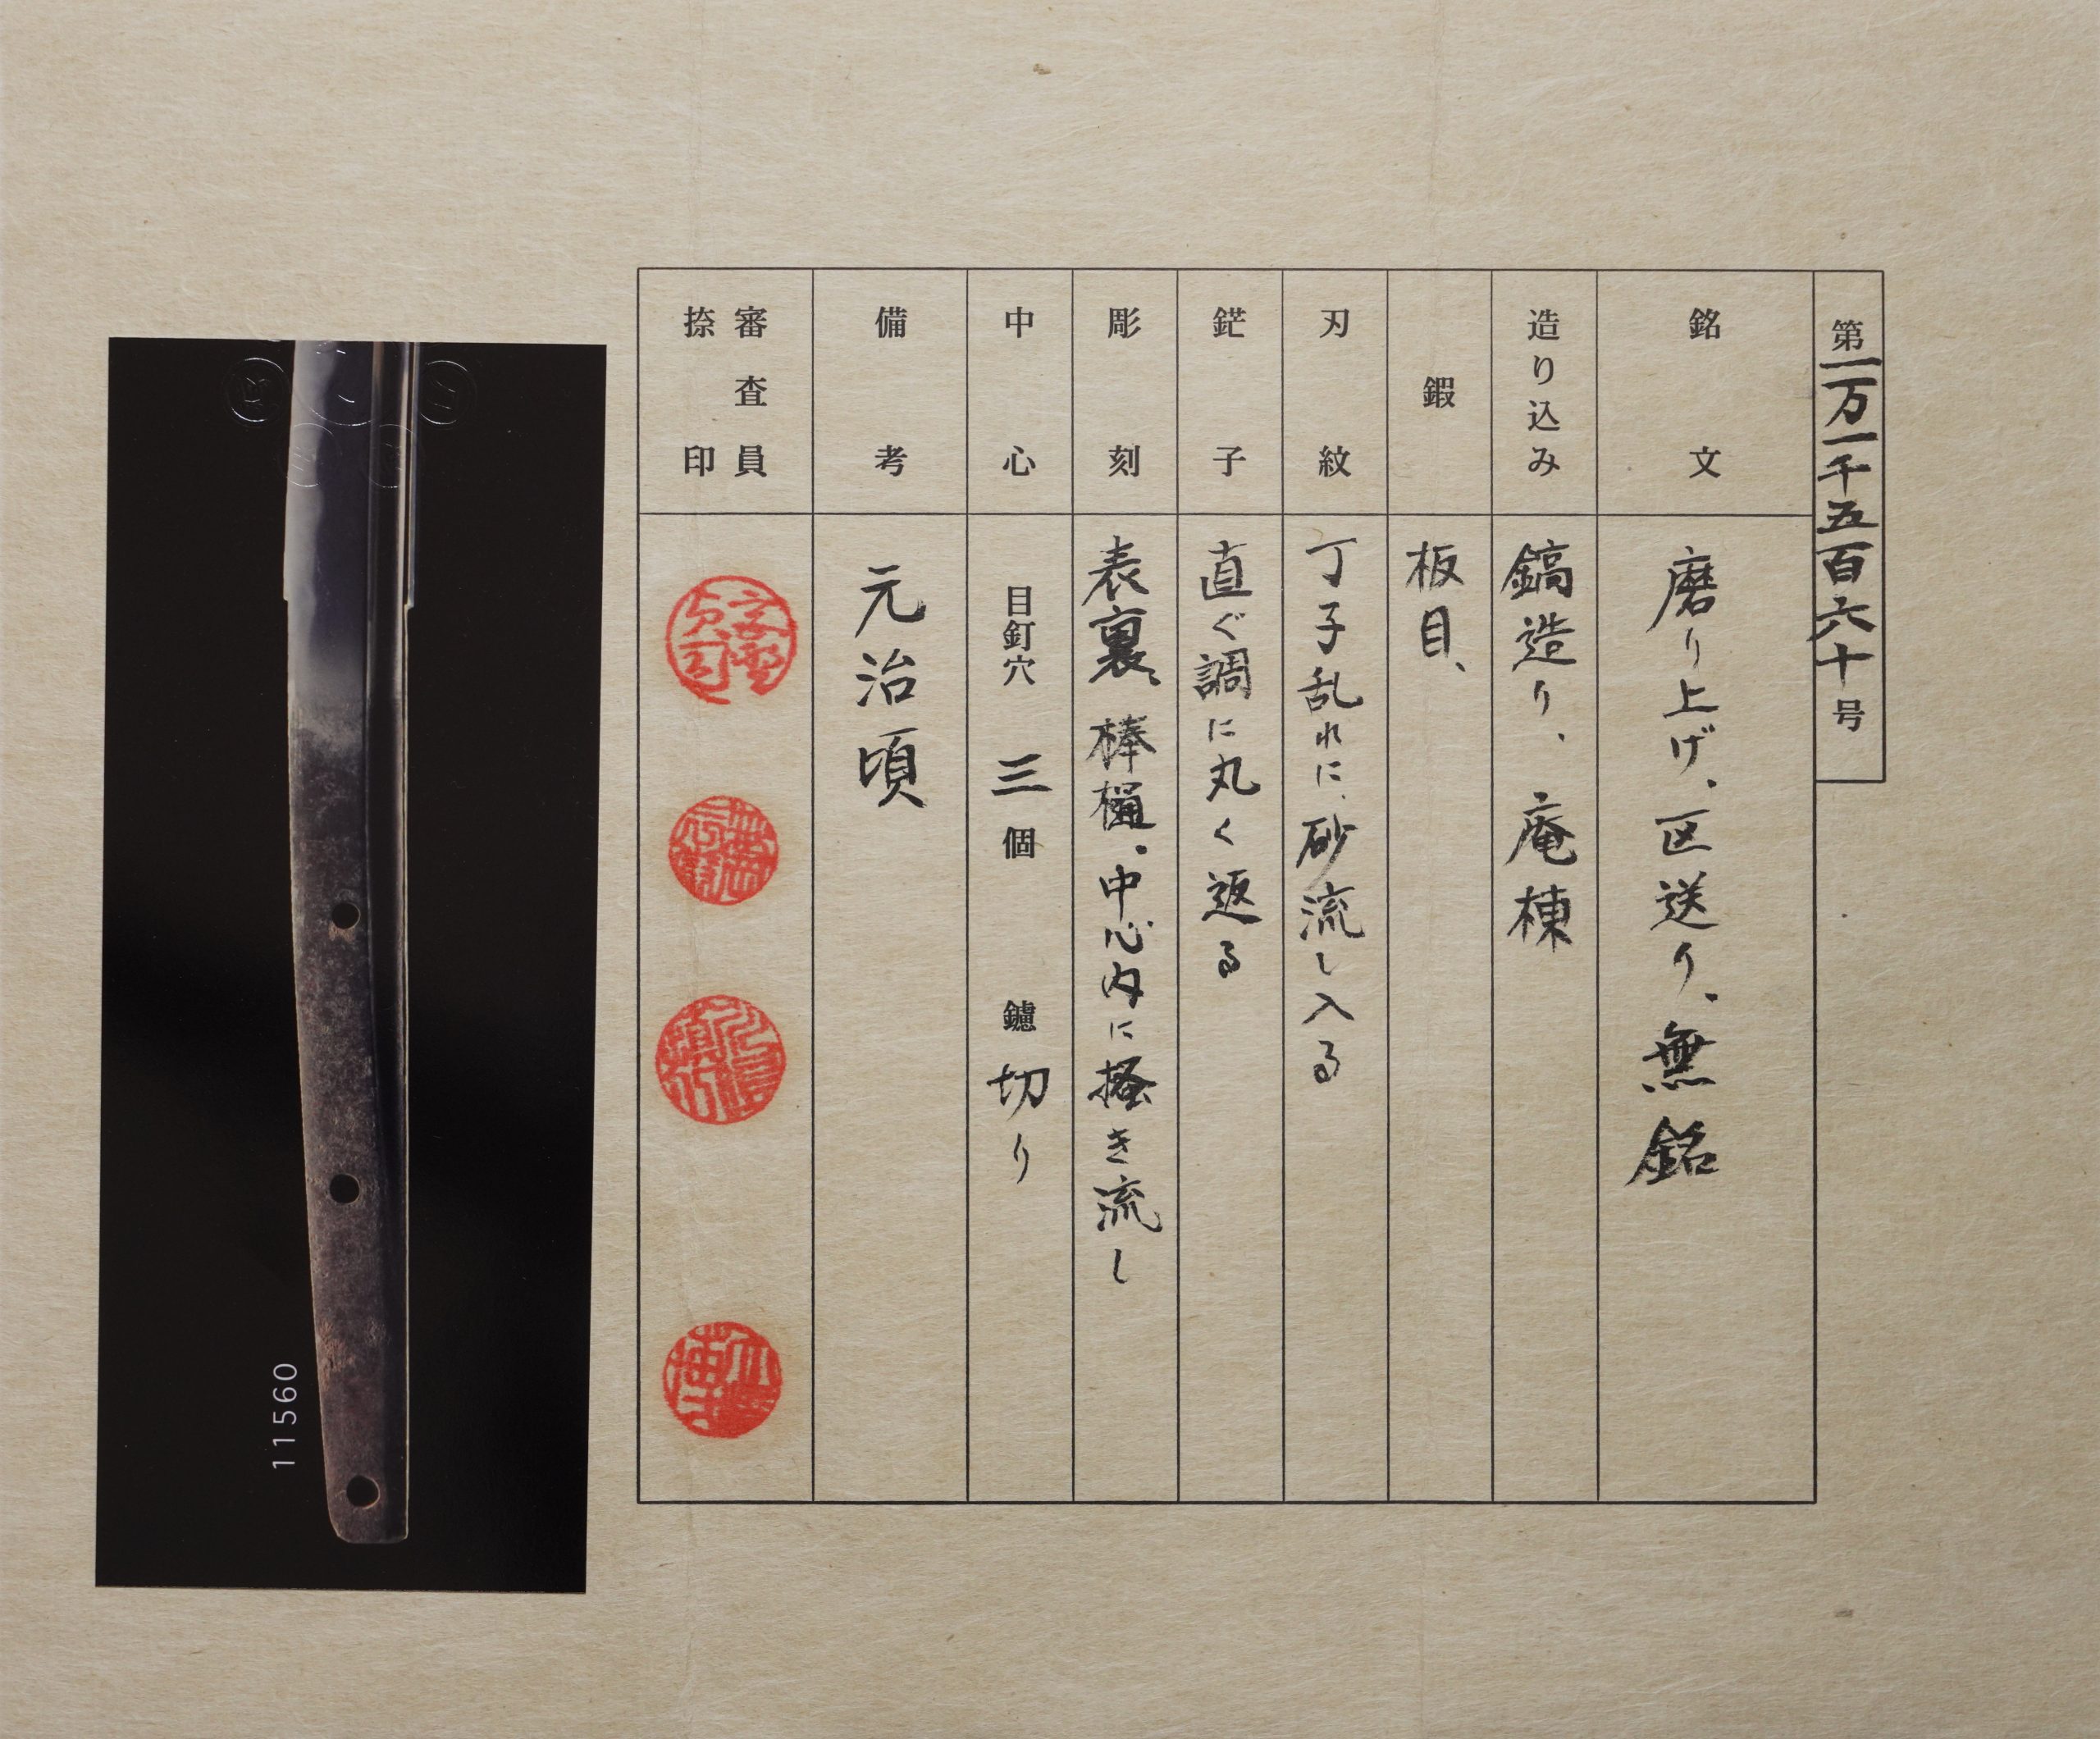 第一万一千五百六十号
銘文
磨り上げ、区送り、無銘
造り込み
鎬造り、庵棟
鍜
板目、
刃紋
丁子乱れに、砂流し入る
鋩子
直ぐ調に丸く返る
彫刻
表裏、棒樋、中心内に掻き流し
中心
目釘穴 三個 鑢 切り
備考
元治頃
審査員
捺印
11560